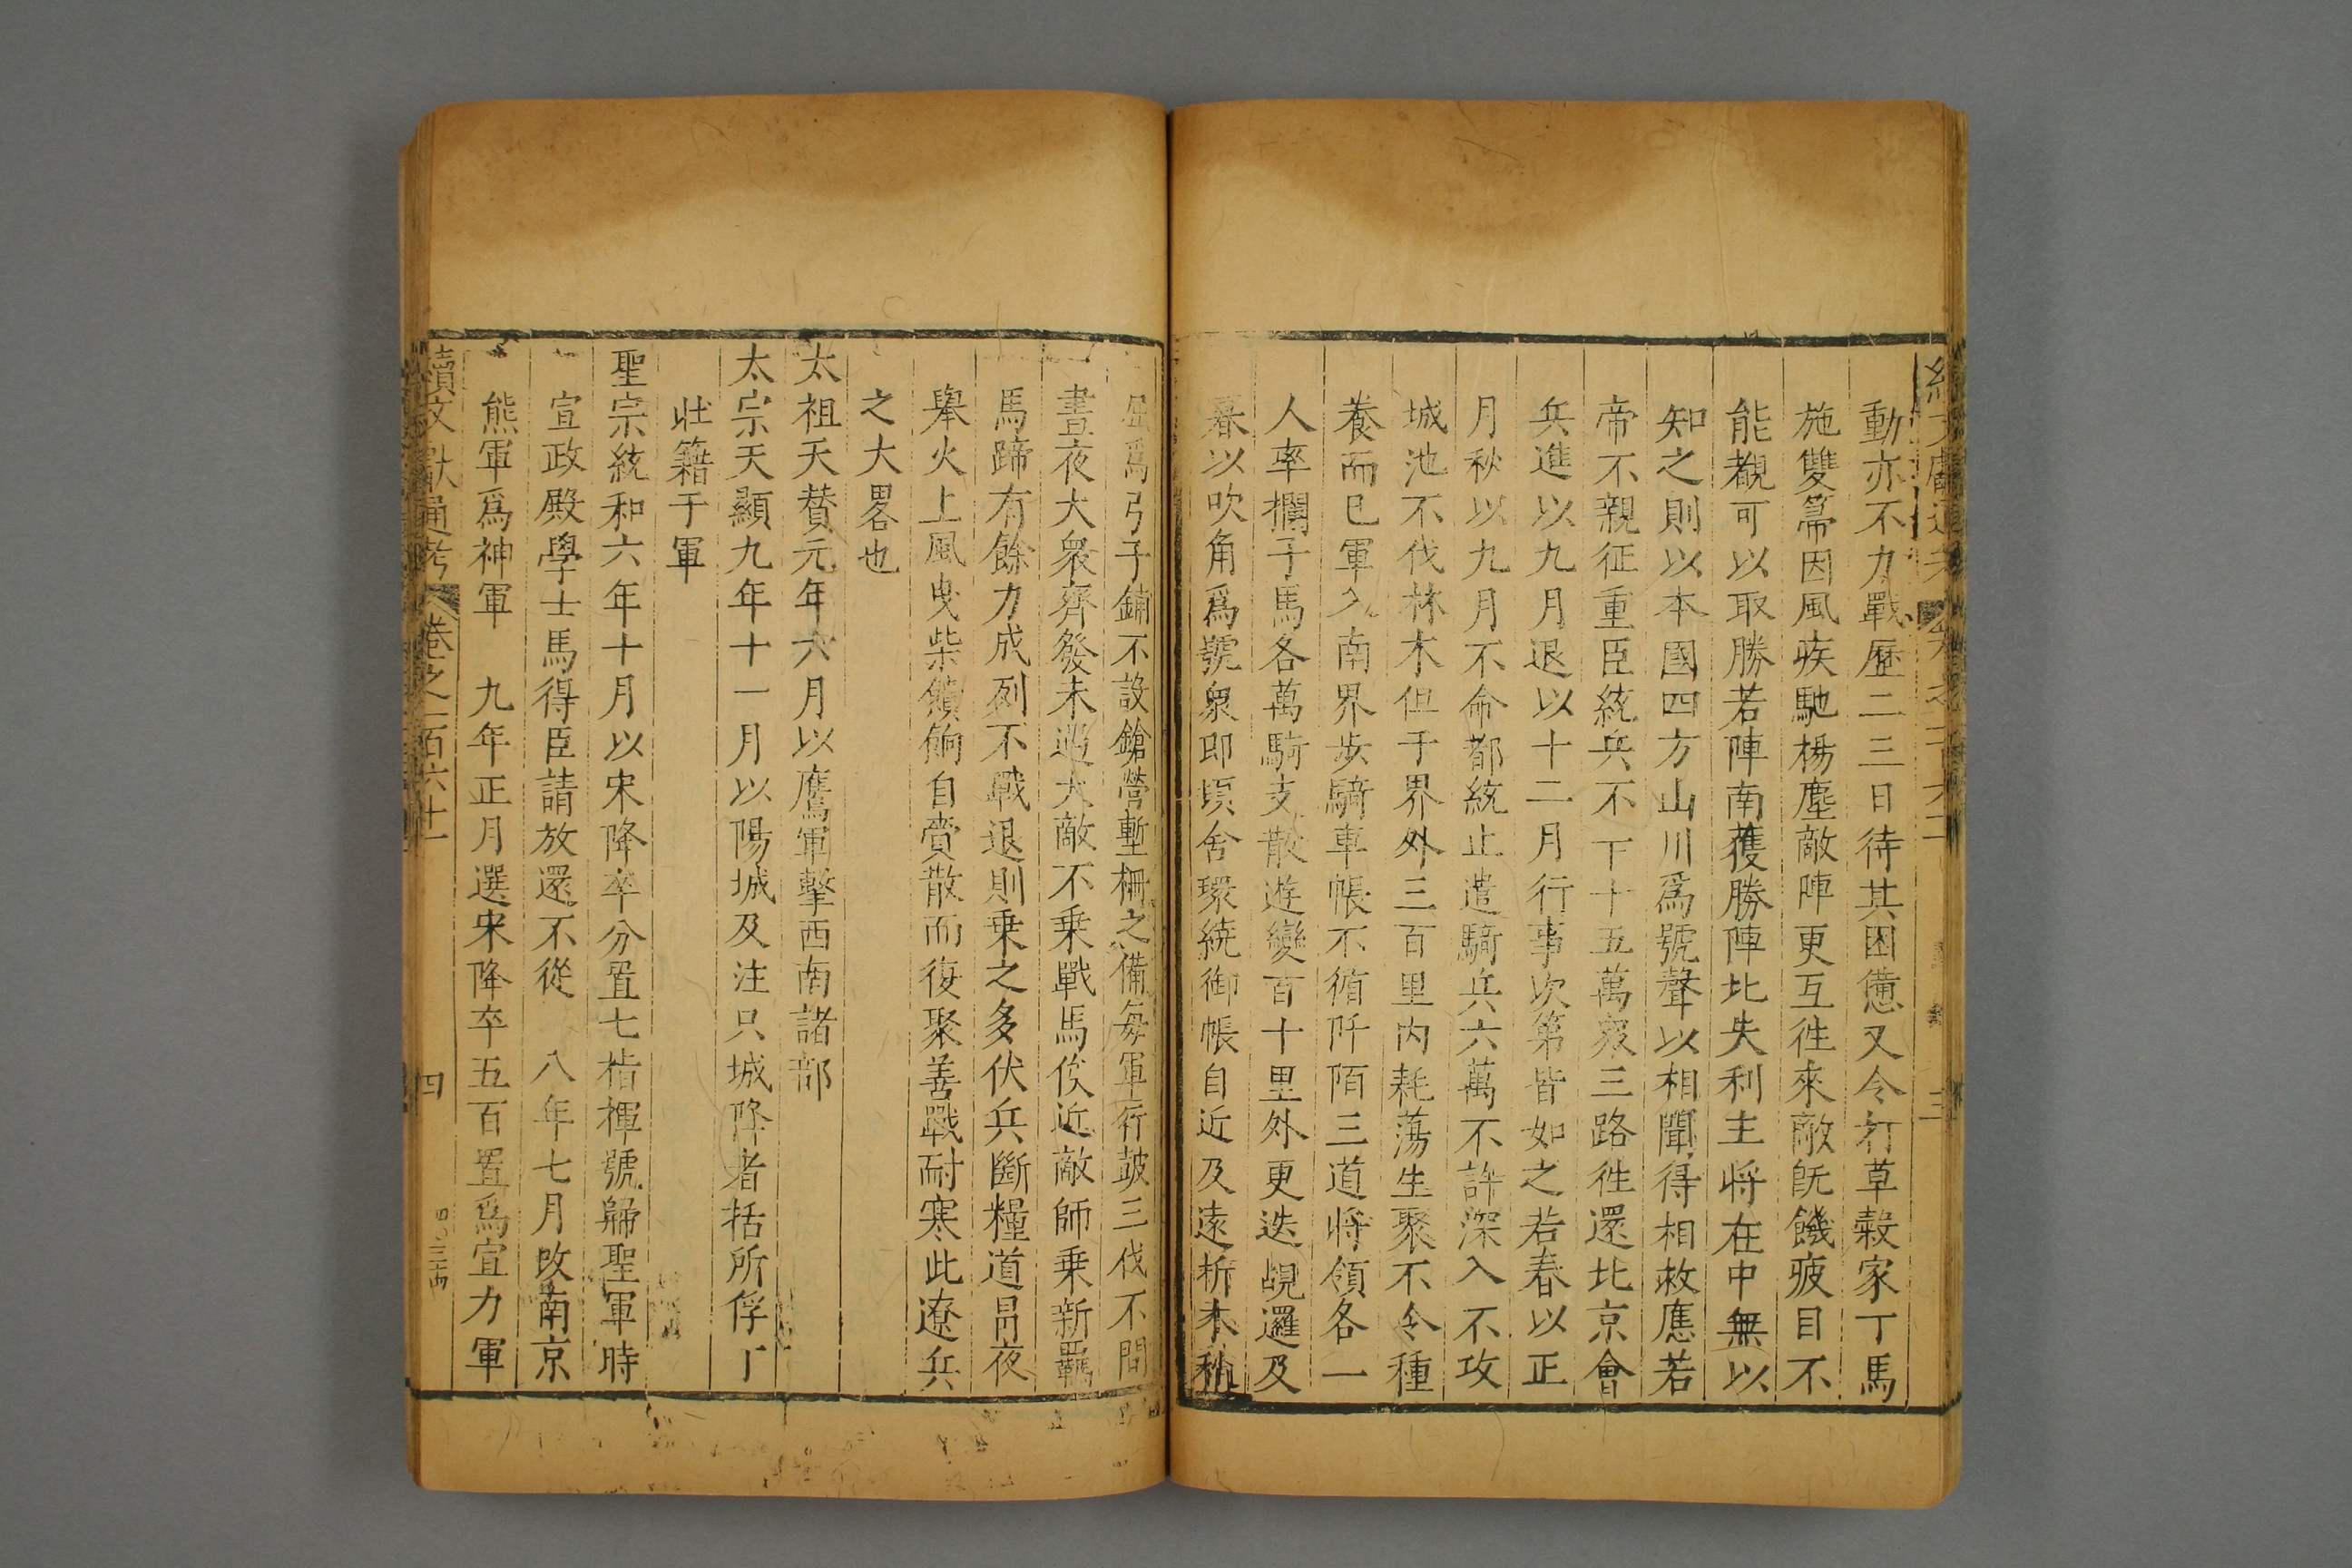 動亦不力戰歷二三日待其困憊又令打草榖家丁馬
施雙箒因風疾馳楊塵敵陣更互徃來敵旣饑疲目不
能覩可以取勝若陣南獲勝陣北失利主將在中無以
知之則以本國四方山川爲號聲以相聞得相救應若
帝不親征重臣統兵不下十五萬衆三路徃還北京會
兵進以九月退以十二月行事次第皆如之若春以正
月秋以九月不命都統止遣騎兵六萬不許深入不攻
城池不伐林木但于界外三百里内耗蕩生聚不令種
養而已軍入南界步騎車帳不循阡陌三道將領各一
人率攔子馬各萬騎支散遊變百十里外更迭覘邏及
暮以吹角爲號衆即頃舍環繞御帳自近及遠折木稍
屈爲弓子鋪不設鎗營塹柵之備每軍行鼓三伐不問
晝夜大衆齊發未遇大敵不乗戰馬俟近敵師乗新羈
馬蹄有餘力成列不戰退則乗之多伏兵斷糧道冒夜
舉火上風曳柴饋餉自賫散而復聚善戰耐寒此遼兵
之大畧也
太祖天賛元年六月以鷹軍擊西南諸部
太宗天顯九年十一月以陽城及注只城降者括所俘丁
壯籍于軍
聖宗統和六年十月以宋降卒分置七指揮號歸聖軍時
宣政殿學士馬得臣請放還不從　八年七月改南京
熊軍爲神軍　九年正月選宋降卒五百置爲宣力軍
續文獻通考　卷之一百六十一　四